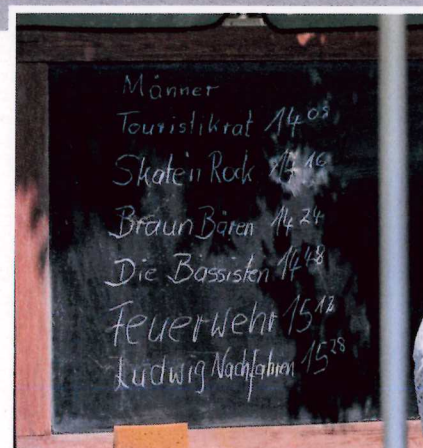 Männer
Touristikrat 14 05
Skate'n Rock 14 16
Braun Bären 14 24
Die Bassisten 14 48
Feuerwehr 15 12
Ludwig Nachfahren 15 28